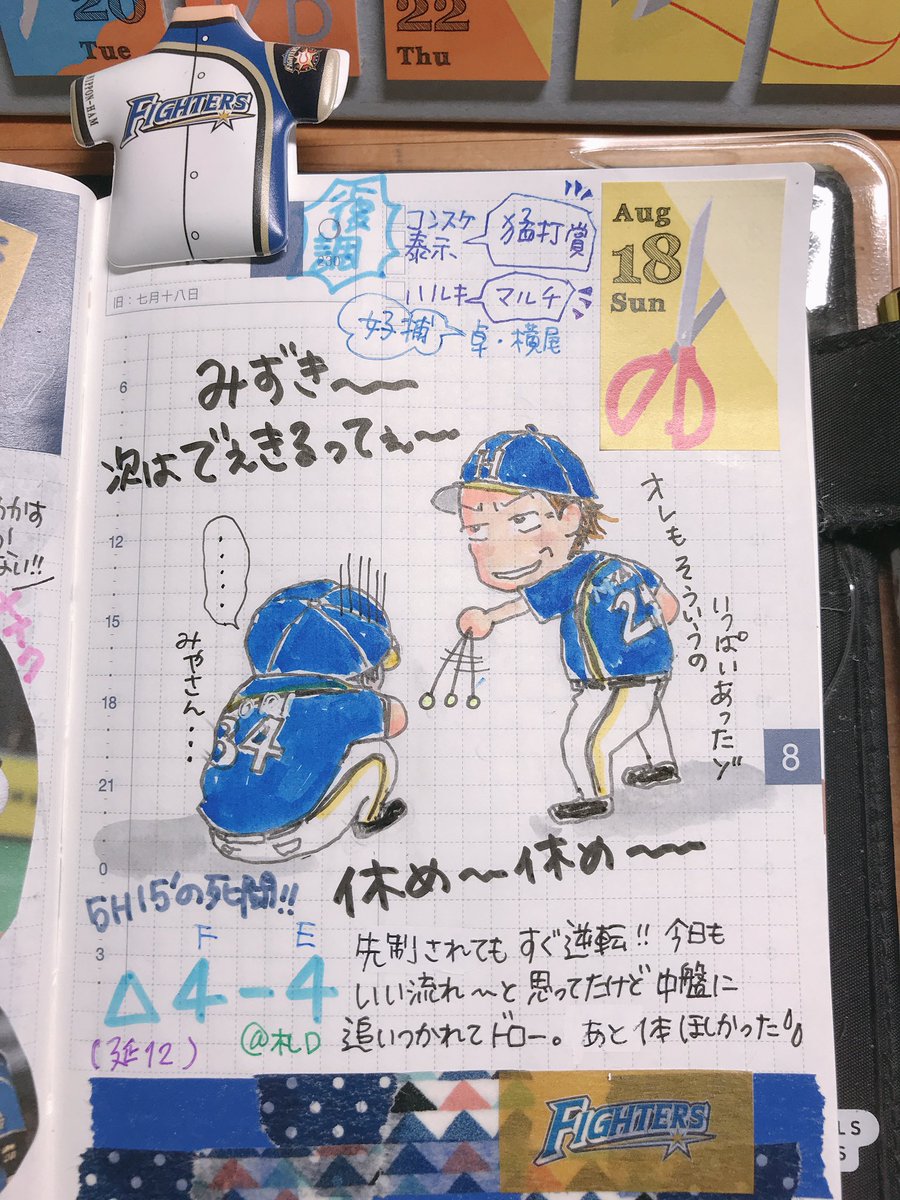 20
Tue
22
Thu
NIPPON-HAM
FIGHTERS
復調
コンスケ
泰示、
猛打賞
ハルキ
マルチ
好捕
卓・横尾
Aug
18
Sun
旧：七月十八日
みずき〜〜
次はでぇきるってぇ〜
6
12
15
18
21
0
3
H
オレもそういうの
いっぱいあったゾ
・・・・・
みやさん・・・
34
2
8
休め〜休め〜〜
5H15'の死闘!!
F E
△4-4
(延12)
@札D
先制されてもすぐ逆転!! 今日も
いい流れ〜と思ってたけど中盤に
追いつかれてドロー。あと1本ほしかった
FIGHTERS
ない!!
LS
S